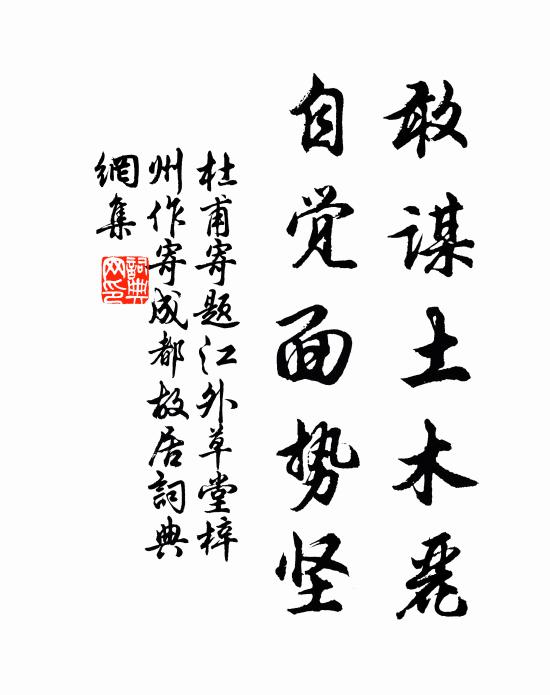 敢谋土木麗
自觉面势坚
杜甫寄題江外草堂梓
州作寄成都故居詞典
網集
詞典
网印